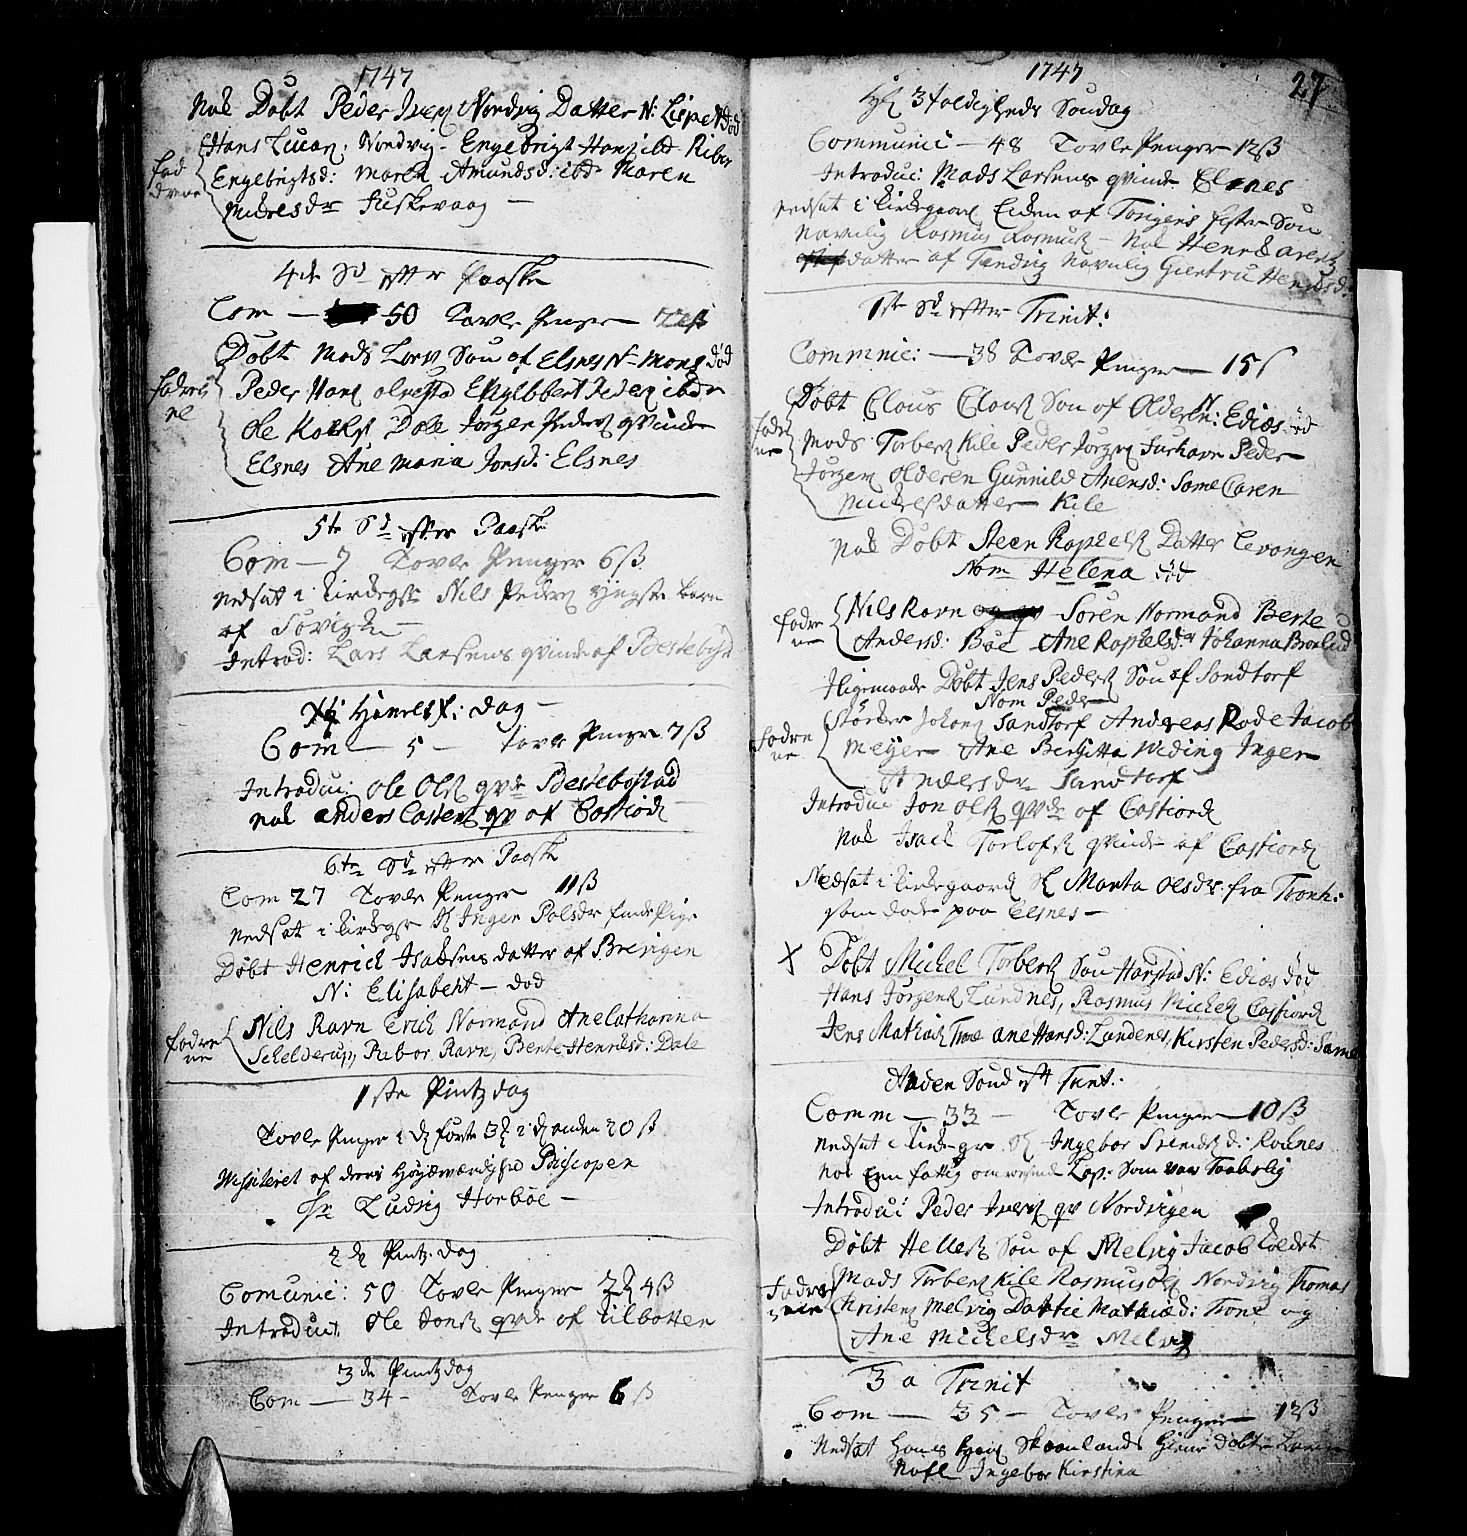 1747
Nok Døbt Peder Iverſ Nordvig Datter N: Lispet død
Hans Lucaſ. Nordvig. Engebrigt Hanſ ibd Ribor
fad
derne
Engebrigtsd: Maren Amundsd: ibd Maren
Mikelsdr Fuskevaag –
4de Sd efter Paaske
Com – 50 Tavle Penger
Døbt Mads Larſ Søn af Elsnes N– Mons død
faderne
Peder Hanſ Engelbbert Pederſ ibdn
Ole Dale Jørgen Pederſ qvinde
Elsnes Ane Maria Jonsd: Elsnes
5te Sd efter Paaske
Com – 7 Tavle Penger 6ß
Nedsat i Kirkegr Nils Pederſ yngste barn
af Sørvigen –
Introd: Lars Larsens qvinde af Bestebostad
Xti Himelf: dag –
Com – 5 – Tavle Penger 7ß
Introduc: Ole Olſ qvde Bestebostad
Nok anders Castenſ qv af Castiord
6te Sd efter Paaske
Com 27 Tavle Penger 11ß
Nedsat i Kirkegr Sl Inger Polsdr
Døbt Henrich Isaksens datter af Brevigen
N: Elisabeht – død
faderne
Nils Ravn Erich Normand Ane Catharina
Schelderup, Ribor Ravn, Bente Henriksd: Dale
1ste Pintz dag
Tavle Penger i d første 3ß i d anden 20ß
Wissiteret af deris Høyædværdighed Biscopen
Hr Ludvig Harboe –
2d Pintz. dag
Comunic: 50 Tavle Penger 2 4ß
Introduct Ole Jonſ qvde af Kilbotten
3de Pintzdag
Com — 34 – Tavle Penger 6ß
1747
27
Hl 3foldigheds Søndag
Communic – 48 Tavle Penger 12ß
Introduc: Mads Larsens qvinde Elsnes
Nedsat i Kirkegaard af søster Søn
Navnlig Rasmus Rasmusſ – Nok Henr
datter af Tændvig Navnlig Giertru Henriksd:
1ste Sd efter Trinit:
Commnic: — 38 Tavle Penger — 15ß
Døbt Claus Clausſ Søn af Olderen N: Edias død
fadrene
Mads Torberſ Kile Peder Jørgenſ Furhavn Peder
Jørgenſ Olderen Gunnild Anensd: Same Caren
Mickelsdatter – Kile
Nok Døbt Steen Raphelſ Datter Levangen
Nom Helena død
fadrene
Nils Ravn Søren Normand Berte
Andersd: Bøe Ane Raphelsdr Johanna Brolid
Iligemaade Døbt Jens Pederſ Søn af Sandtorf
Nom Peder
fadrene
Størker Johanſ Sandtorf Andreas Rode Jacob
Meyer Ane Birgitta Weding Inger
Andersdr Sandtorf
Introduc Jon Olſ qvde af Castiord
Nok Isach Torlofſ qvinde af Castiord
Nedsat i Kirkegaard Sl Marta Olsdr: fra Tronh:
som døde paa Elsnes –
X Døbt Michel Torberſ Søn Harstad N: Edias død
Hans Jørgenſ Lundnes, Rasmus Mickelſ Casfiord
Jens Mathiaſ Trone ane Hansd: Lundenes, Kirsten Pedersd: Same
Anden Sønd eft Trnt:
Comm — 33 – Tavle Penger — 10ß
Nedsat i Kirkegr Sl Ingebor Svendsd: Rodnes
Nok Een fattig omreisend Lap: Som var Taabelig
Introduc: Peder Iverſ qv Nordvigen
Døbt Hellesſ Søn af Melvig Jacob
fadrene
Mads Torberſ Kile Rasmus Olſ Nordvig Thomas
Christenſ Melvig Dortie Mathiæd: Trone og
Ane Michelsdr Melvig
3 a Trinit
Com — 35 – Tavle Penger — 12ß
Nedsat Skaanlands døbte
Nafl Ingebor Kirstina